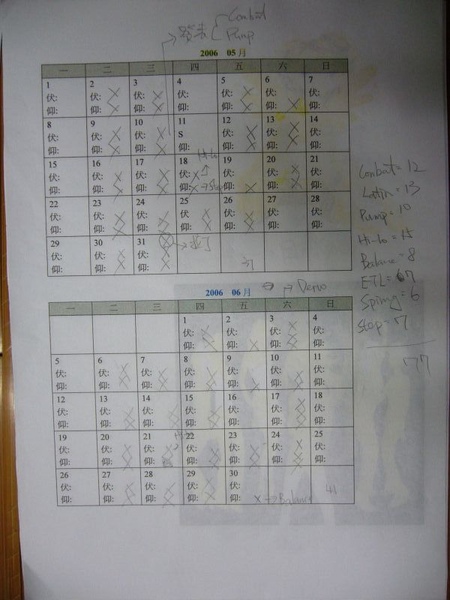 Combat
Pump
2006 05 月
一 二 三 四 五 六 日
1 2 3 4 5 6 7
伏: 伏: 伏: 伏: 伏: 伏: 伏:
仰: 仰: 仰: 仰: 仰: 仰: 仰:
8 9 10 11 12 13 14
伏: 伏: 伏: S 伏: 伏: 伏:
仰: 仰: 仰: 仰: 仰: 仰:
15 16 17 18 19 20 21
伏: 伏: 伏: 伏: 伏: 伏: 伏:
仰: 仰: 仰: 仰: 仰: 仰: 仰:
22 23 24 25 26 27 28
伏: 伏: 伏: 伏: 伏: 伏: 伏:
仰: 仰: 仰: 仰: 仰: 仰: 仰:
29 30 31
伏: 伏: 伏:
仰: 仰: 仰:
Combat = 12
Latin = 13
Pump = 10
Hi-Lo = 15
Balance = 8
2006 06 月
Demo
一 二 三 四 五 六 日
1 2 3 4
伏: 伏: 伏: 伏:
仰: 仰: 仰: 仰:
5 6 7 8 9 10 11
伏: 伏: 伏: 伏: 伏: 伏: 伏:
仰: 仰: 仰: 仰: 仰: 仰: 仰:
12 13 14 15 16 17 18
伏: 伏: 伏: 伏: 伏: 伏: 伏:
仰: 仰: 仰: 仰: 仰: 仰: 仰:
19 20 21 22 23 24 25
伏: 伏: 伏: 伏: 伏: 伏: 伏:
仰: 仰: 仰: 仰: 仰: 仰: 仰:
26 27 28 29 30
伏: 伏: 伏: 伏: 伏:
仰: 仰: 仰: 仰: 仰:
X→Balance